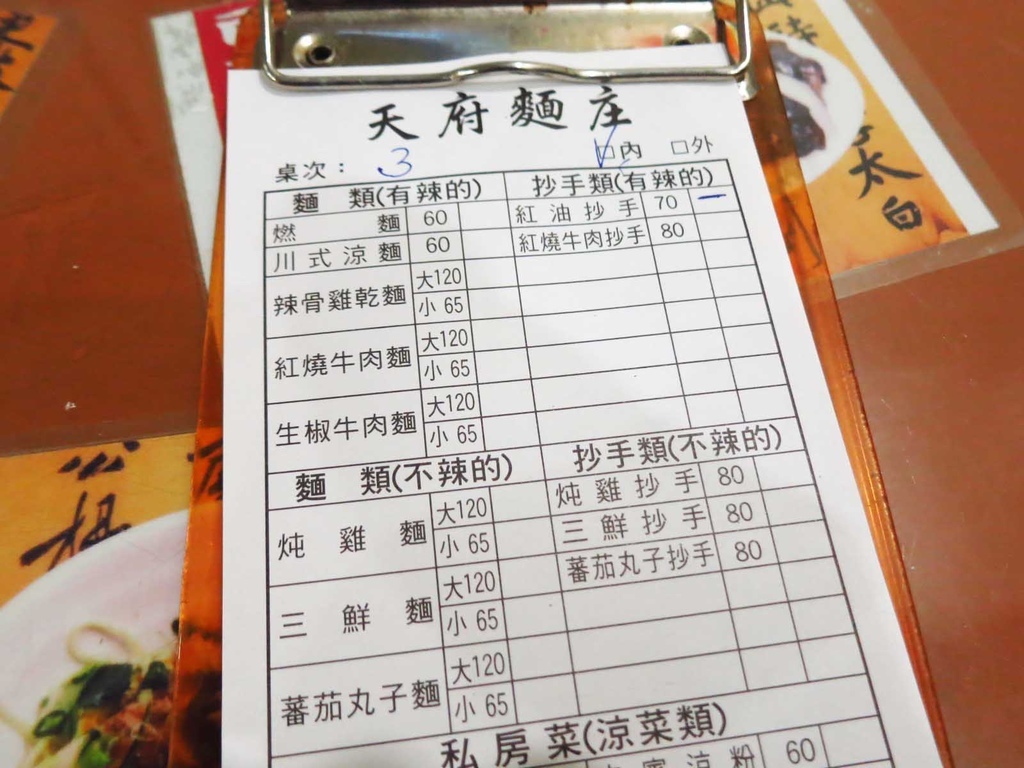 天府麵庄
桌次： 3 □內 □外
麵 類(有辣的) 抄手類(有辣的)
燃麵 60 紅油抄手 70 一
川式涼麵 60 紅燒牛肉抄手 80
辣骨雞乾麵 大120
小 65
紅燒牛肉麵 大120
小 65
生椒牛肉麵 大120
小 65
麵 類(不辣的) 抄手類(不辣的)
炖雞麵 大120 炖雞抄手 80
小 65 三鮮抄手 80
三鮮麵 大120 蕃茄丸子抄手 80
小 65
蕃茄丸子麵 大120
小 65
私房菜(涼菜類)
涼粉 60
太白